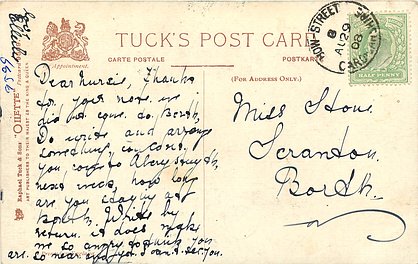 TUCK'S POST CARD
CARTE POSTALE
POSTKARTE
(FOR ADDRESS ONLY.)
Appointment.
Raphael Tuck & Sons' "OILETTE"
5656
HALF PENNY
AU 29
08
Dear Nursie, Thanks
for your note. we
did not come to Borth,
Do write and arrange
something, in case
you come to Aberystwyth
next week, how long
are you staying at
Borth. Write by
return. it does make
me so angry you
are so near and yet I can't see you.
Miss Stone
Scranton
Borth.